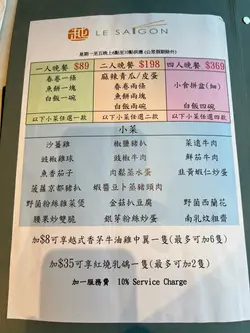 越
LE SAIGON
星期一至五晚上6點至10點供應 (公眾假期除外)
一人晚餐 $89 二人晚餐 $198 四人晚餐 $369
春卷一條 麻辣青瓜/皮蛋 小食拼盤(細)
魚餅一塊 春卷兩條
白飯一碗 魚餅兩塊
白飯兩碗 白飯四碗
以下小菜任選一款 以下小菜任選兩款 以下小菜任選四款
小菜
沙薑雞 椒鹽豬扒 菜遠牛肉
豉椒雞球 豉椒牛肉 鮮茄牛肉
魚香茄子 肉鬆蒸水蛋 韭黃蝦仁炒蛋
菠蘿京都豬扒 蝦醬豆卜蒸豬頭肉
野菌粉絲雜菜煲 金菇扒豆腐 野菌西蘭花
腰果炒雙脆 銀芽粉絲炒蛋 南乳炆粗齋
加$8可享越式香茅牛油雞中翼一隻(最多可加6隻)
加$35可享紅燒乳鴿一隻(最多可加2隻)
加一服務費 10% Service Charge